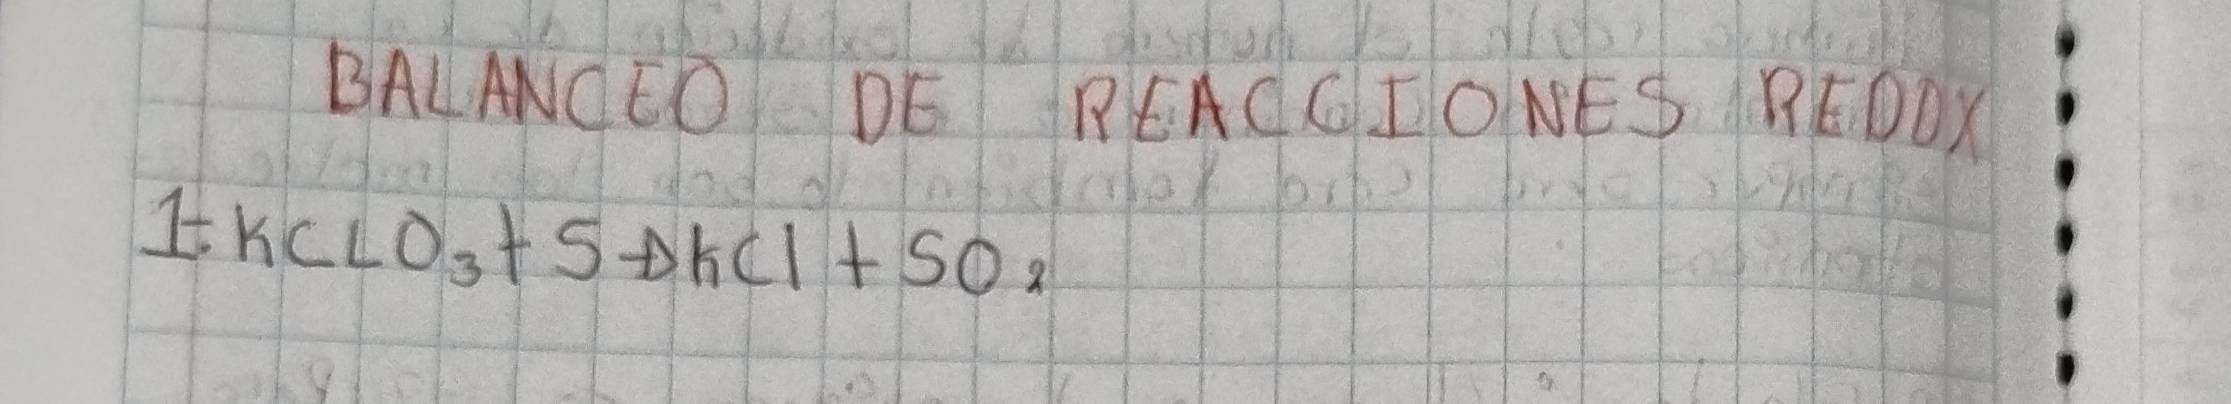 BALANCEO DE REACCIONES REDOX
1-. KCLO₃ + S → KCl + SO₂